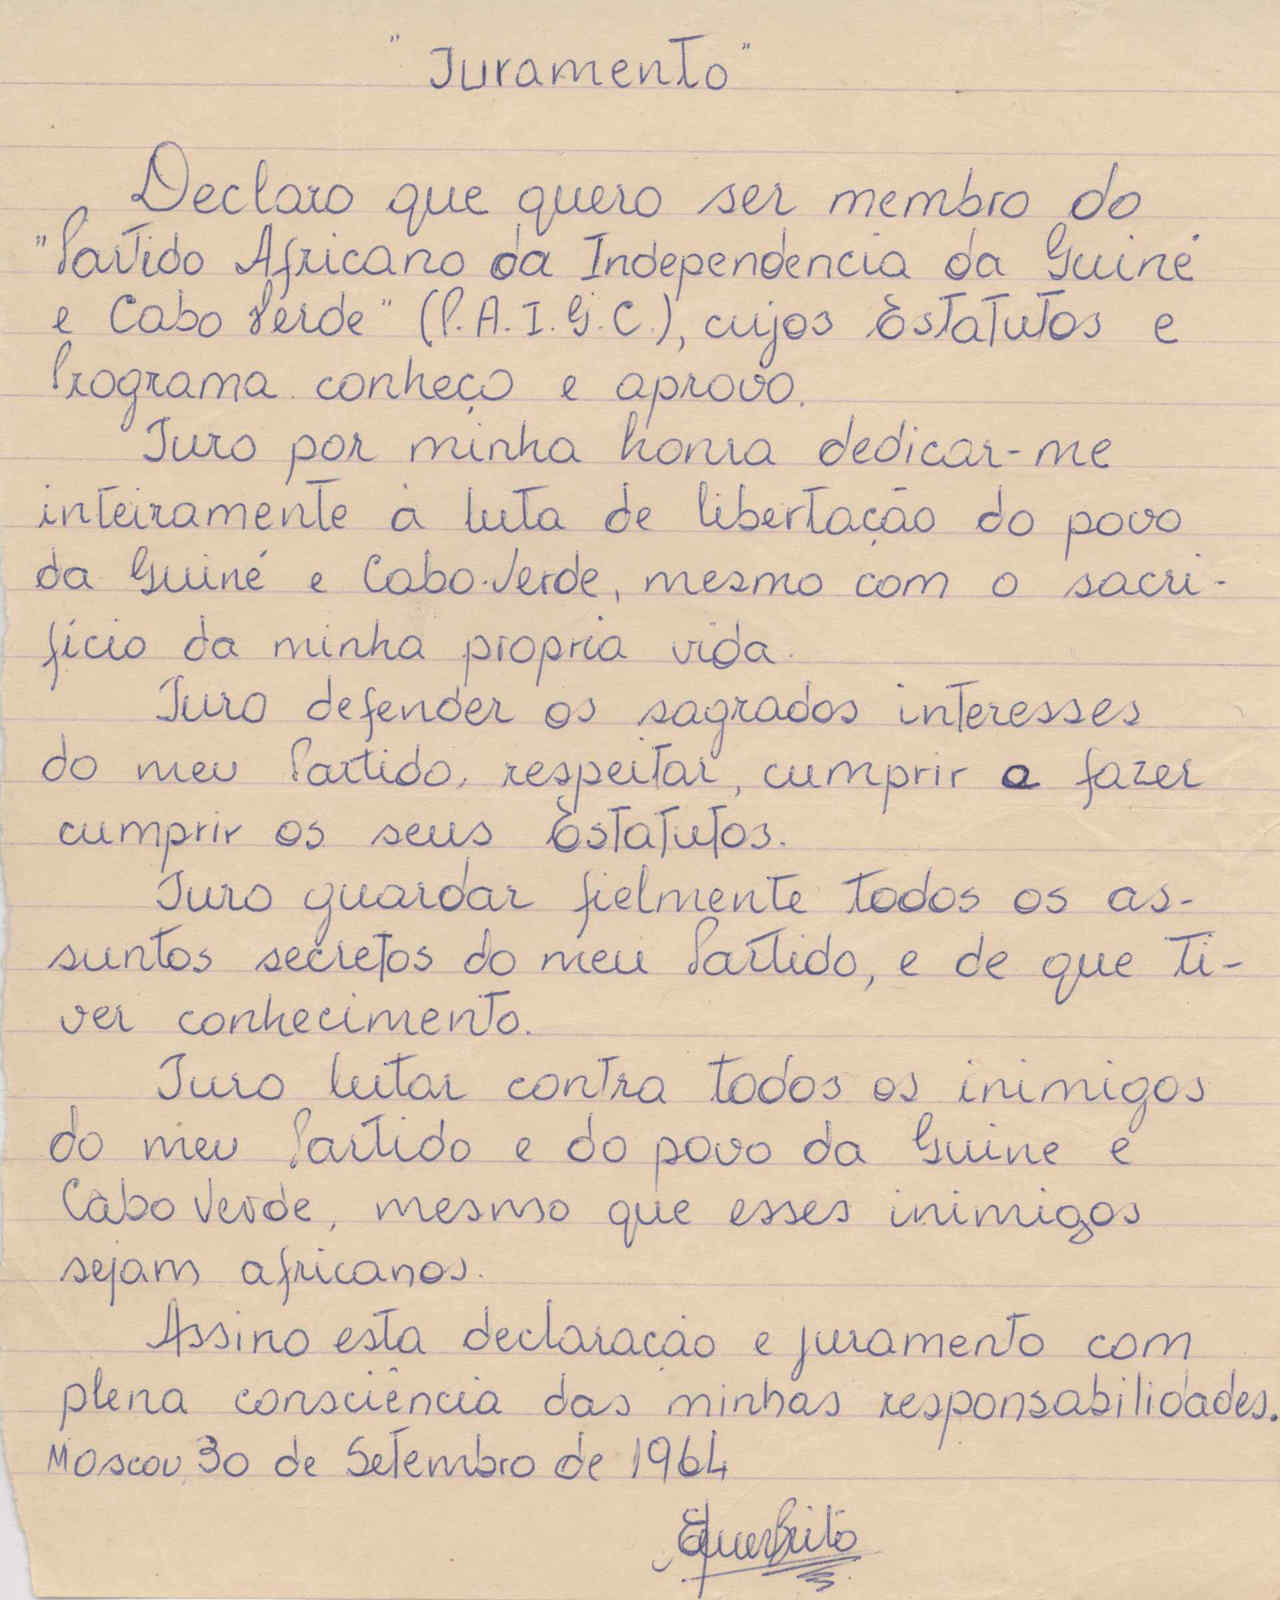 "Juramento"
Declaro que quero ser membro do
"Partido Africano da Independencia da Guiné
e Cabo Verde" (P.A.I.G.C.), cujos Estatutos e
Programa conheço e aprovo.
Juro por minha honra dedicar-me
inteiramente à luta de libertação do povo
da Guiné e Cabo-Verde, mesmo com o sacri-
fício da minha propria vida.
Juro defender os sagrados interesses
do meu Partido, respeitar, cumprir e fazer
cumprir os seus Estatutos.
Juro guardar fielmente todos os as-
suntos secretos do meu Partido, e de que ti-
ver conhecimento.
Juro lutar contra todos os inimigos
do meu Partido e do povo da Guine e
Cabo Verde, mesmo que esses inimigos
sejam africanos.
Assino esta declaração e juramento com
plena consciência das minhas responsabilidades.
Moscou, 30 de Setembro de 1964